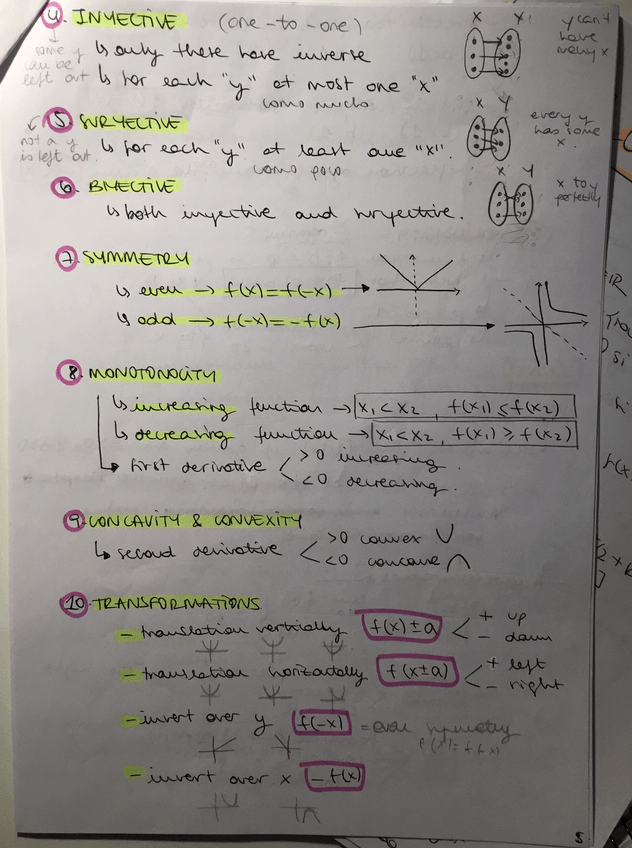 4. INYECTIVE (one-to-one)
X Y
y can't have many x
some y can be left out
↳ only these have inverse
↳ for each "y" at most one "x"
como mucho
5. SURYECTIVE
X Y
every y has some x.
not a y is left out.
↳ for each "y" at least one "x".
como poco
6. BIYECTIVE
X Y
x to y perfectly
↳ both inyective and suryective.
7. SYMMETRY
↳ even → f(x)=f(-x) →
↳ odd → f(-x)=-f(x) →
8. MONOTONOCITY
↳ increasing function → x₁<x₂, f(x₁)≤f(x₂)
↳ decreasing function → x₁<x₂, f(x₁)≥f(x₂)
↳ first derivative < >0 increasing.
<0 decreasing.
9. CONCAVITY & CONVEXITY
↳ second derivative < >0 convex ∪
<0 concave ∩
10. TRANSFORMATIONS
- translation vertically f(x)±a < + up
- down
- translation horizontally f(x±a) < + left
- right
- invert over y f(-x) = even symmetry
- invert over x -f(x)
5